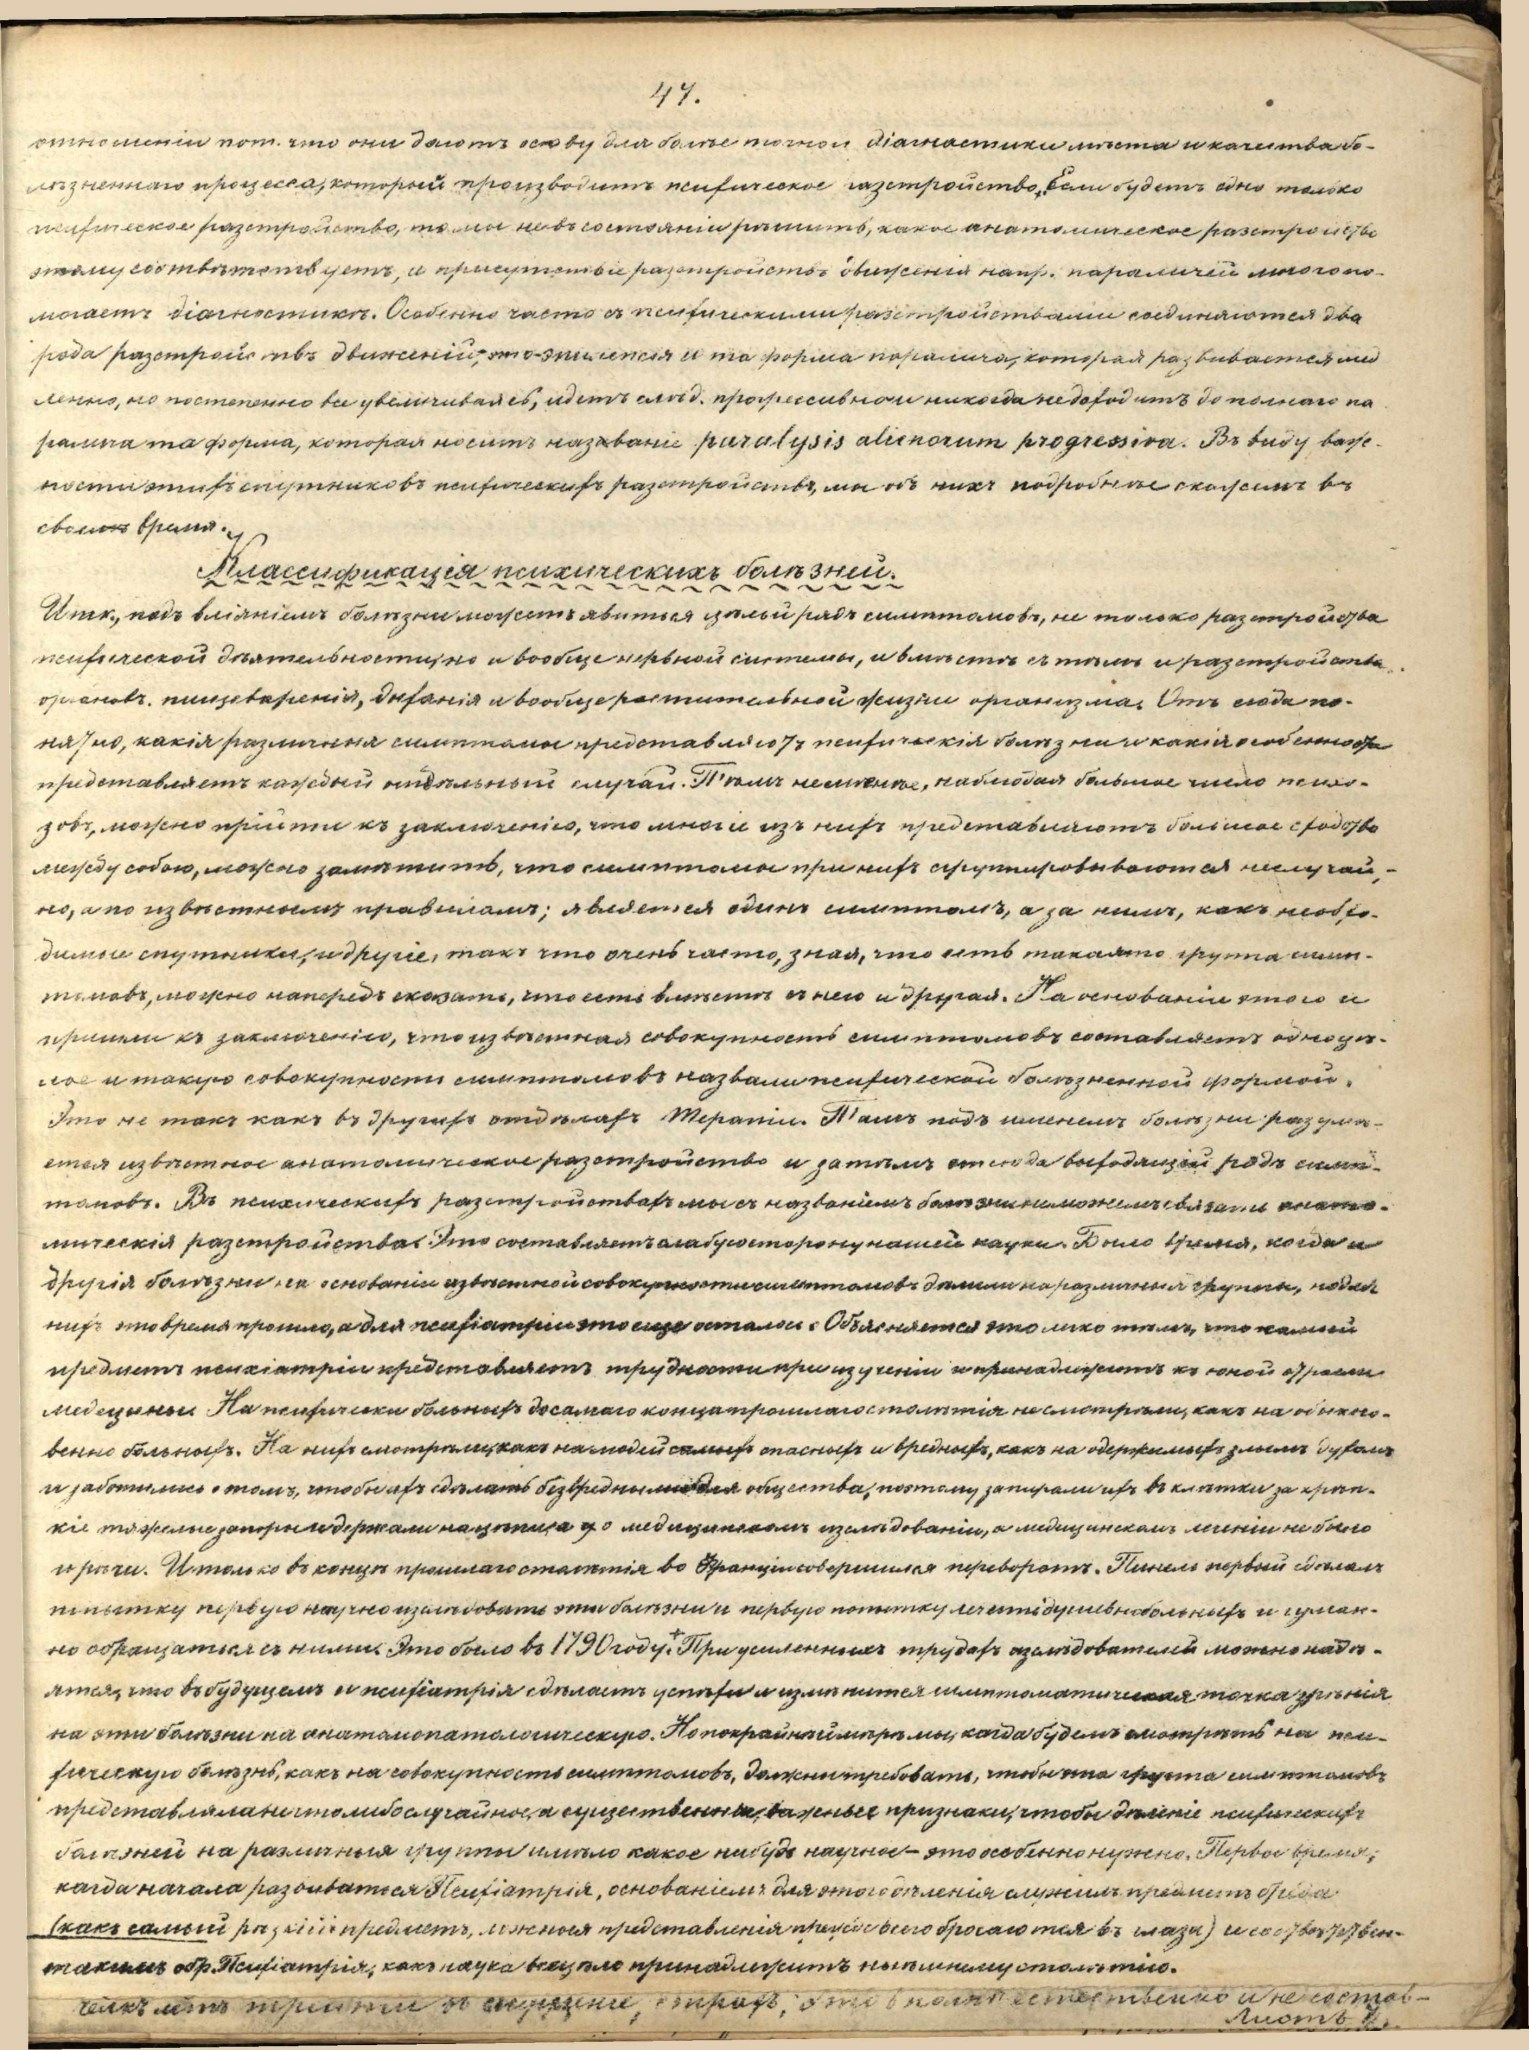 47.
отношеніи пот. что они даютъ основу для болѣе точной діагностики мѣста и качества бо-
лѣзненнаго процесса, который производитъ психическое разстройство, Если будетъ одно только
психическое разстройство, то мы не въ состояніи рѣшить, какое анатомическое разстройство
этому соотвѣтствуетъ, и присутствіе разстройствъ движенія напр. параличей много по-
могаетъ діагностикѣ. Особенно часто съ психическими разстройствами соединяются два
рода разстройствъ движеній, это эпилепсія и та форма паралича, которая развивается мед
ленно, но постепенно все увеличиваясь, идетъ слѣд. прогрессивно и никогда не доходитъ до полнаго па
ралича та форма, которая носитъ названіе paralysis alienorum progressiva. Въ виду важ-
ности этихъ спутниковъ психическихъ разстройствъ, мы объ нихъ подробнѣе скажемъ въ
свое время.
Классификація психическихъ болѣзней.
Итк., подъ вліяніемъ болѣзни можетъ явиться цѣлый рядъ симптомовъ, не только разстройства
психической дѣятельности, но и вообще нервной системы, и вмѣстѣ съ тѣмъ и разстройства
органовъ пищеваренія, дыханія и вообще растительной жизни организма. Отъ сюда по-
нятно, какія различныя симптомы представляютъ психическія болѣзни и какія особенности
представляетъ каждый отдѣльный случай. Тѣмъ не менѣе, наблюдая большое число психо-
зовъ, можно прійти къ заключенію, что многіе изъ нихъ представляютъ большое сходство
между собою, можно замѣтить, что симптомы при нихъ группировываются не случай-
но, а по извѣстнымъ правиламъ; является одинъ симптомъ, а за нимъ, какъ необхо-
димые спутники, и другіе, такъ что очень часто, зная, что есть такая то группа симп-
томовъ, можно напередъ сказать, что есть вмѣстѣ съ нею и другая. На основаніи этого и
пришли къ заключенію, что извѣстная совокупность симптомовъ составляетъ одно цѣ-
лое и такую совокупность симптомовъ назвали психической болѣзненной формой.
Это не такъ какъ въ другихъ отдѣлахъ Терапіи. Тамъ подъ именемъ болѣзни разумѣ-
ется извѣстное анатомическое разстройство и затѣмъ отсюда выходящій рядъ симп-
томовъ. Въ психическихъ разстройствахъ мы съ названіемъ болѣзни не можемъ связать анато-
мическія разстройства. Это составляетъ слабую сторону нашей науки. Было время, когда и
другія болѣзни на основаніи извѣстной совокупности симптомовъ дѣлили на различныя группы, но для
нихъ это время прошло, а для психіатріи это еще осталось. Объясняется это лико тѣмъ, что самый
предметъ психіатріи представляетъ трудности при изученіи и принадлежитъ къ юной отрасли
медецины. На психически больныхъ до самаго конца прошлаго столѣтія не смотрѣли, какъ на обыкно-
венно больныхъ. На нихъ смотрѣли, какъ на людей самыхъ опасныхъ и вредныхъ, какъ на одержимыхъ злымъ духомъ
и заботились о томъ, чтобы ихъ сдѣлать безвредными для общества, поэтому запирали ихъ въ клѣтки за крѣп-
кіе тяжелые запоры и держали на цѣпи, а о медицинскомъ изслѣдованіи, о медицинскомъ леченіи не было
и рѣчи. И только въ концѣ прошлаго столѣтія во Франціи совершился переворотъ. Пинель первый сдѣлалъ
попытку первую научно изслѣдовать эти болѣзни и первую попытку лечить душевнобольныхъ и гуман-
но обращаться съ ними. Это было въ 1790 году.+ При усиленныхъ трудахъ изслѣдователей можно надѣ-
яться, что въ будущемъ и психіатрія сдѣлаетъ успѣхи и измѣнится симптоматическая точка зрѣнія
на эти болѣзни на анатомопатологическую. Но по крайней мѣрѣ мы, когда будемъ смотрѣть на пси-
хическую болѣзнь, какъ на совокупность симптомовъ, должны требовать, чтобы эта группа симптомовъ
представляла не что либо случайное, а существенные, важные признаки, чтобы дѣленіе психическихъ
болѣзней на различныя группы имѣло какое нибудь научное — это особенно нужно. Первое время,
когда начала развиваться Психіатрія, основаніемъ для этого дѣленія служилъ предметъ бреда
(какъ самый предметъ, ложныя представленія прежде всего бросаются въ глаза) и соотвѣтствен-
такимъ обр. Психіатрія, какъ наука всецѣло принадлежитъ нынѣшнему столѣтію.
страхъ, это вполнѣ естественно и не состав-
Листъ